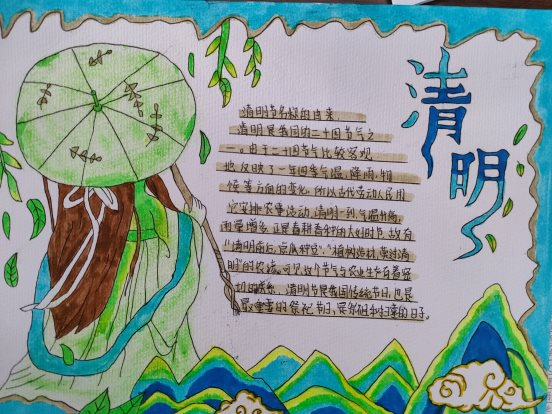 清明
清明节名称的由来
清明是我国的二十四节气之
一。由于二十四节气比较客观
地反映了一年四季气温、降雨、物
候等方面的变化,所以古代劳动人民用
它安排农事活动。清明一到,气温升高,
雨量增多,正是春耕春种的大好时节。故有
"清明前后,点瓜种豆"、"植树造林,莫过清
明"的农谚。可见这个节气与农业生产有着密
切的关系。清明节是我国传统节日,也是
最重要的祭祀节日,是祭祖和扫墓的日子。